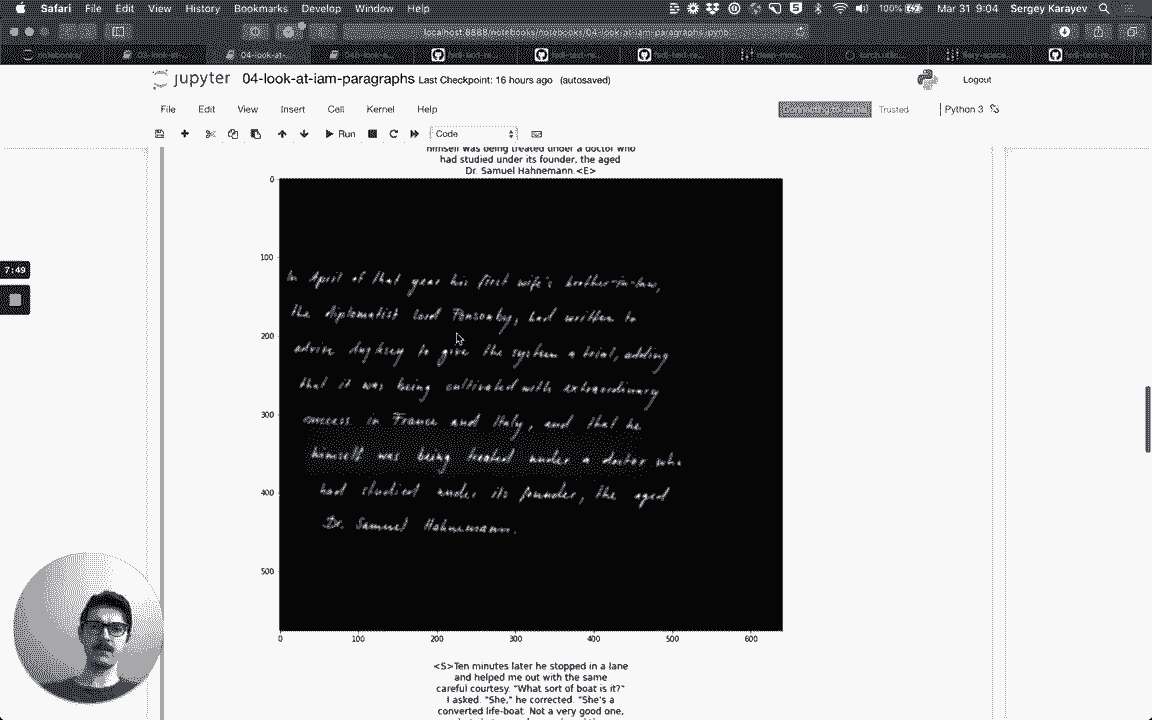 Safari File Edit View History Bookmarks Develop Window Help 100% Mar 31 9:04 Sergey Karayev
localhost:8888/notebooks/notebooks/04-look-at-iam-paragraphs.ipynb
04-look-at-
jupyter 04-look-at-iam-paragraphs Last Checkpoint: 16 hours ago (autosaved) Logout
File Edit View Insert Cell Kernel Help Connecting to kernel Trusted Python 3
Run Code
himself was being treated under a doctor who
had studied under its founder, the aged
Dr. Samuel Hahnemann.<E>
0
100
200
300
400
500
In April of that year his first wife's brother-in-law,
the diplomatist Lord Ponsonby, had written to
advise Anglesey to give the system a trial, adding
that it was being cultivated with extraordinary
success in France and Italy, and that he
himself was being treated under a doctor who
had studied under its founder, the aged
Dr. Samuel Hahnemann.
0 100 200 300 400 500 600
7:49
<S>Ten minutes later he stopped in a lane
and helped me out with the same
careful courtesy. "What sort of boat is it?"
I asked. "She," he corrected. "She's a
converted life-boat. Not a very good one,